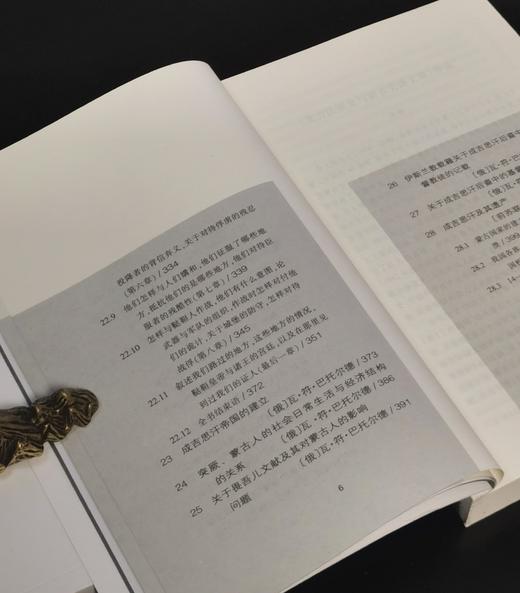 投降者的背信弃义,关于对待俘虏的残忍
(第六章)/334
22.9 他们怎样与人们媾和,他们征服了哪些地
方,抵抗他们的是哪些地方,他们对待臣
服者的残酷性(第七章)/339
22.10 怎样与鞑靼人作战,他们有什么意图,论
武器与军队的组织,作战时怎样对付他
们的诡计,关于城堡的防守,怎样对待
战俘(第八章)/345
22.11 叙述我们路过的地方,这些地方的情况,
鞑靼皇帝与诸王的宫廷,以及在那里见
到过我们的证人(最后一章)/351
22.12 全书结束语/372
23 成吉思汗帝国的建立 〔俄〕瓦·符·巴托尔德/373
24 突厥、蒙古人的社会日常生活与经济结构
的关系 〔俄〕瓦·符·巴托尔德/386
25 关于畏吾儿文献及其对蒙古人的影响
问题 〔俄〕瓦·符·巴托尔德/391
6
26 伊斯兰教教籍关于成吉思汗后裔中
督教徒的记载 〔俄〕瓦·符·巴
27 关于成吉思汗后裔中的基督
〔俄〕瓦·符·
28 成吉思汗及其遗产
〔前苏联
28.1 蒙古国家的建
序/399
28.2 我国各
国
28.3 14